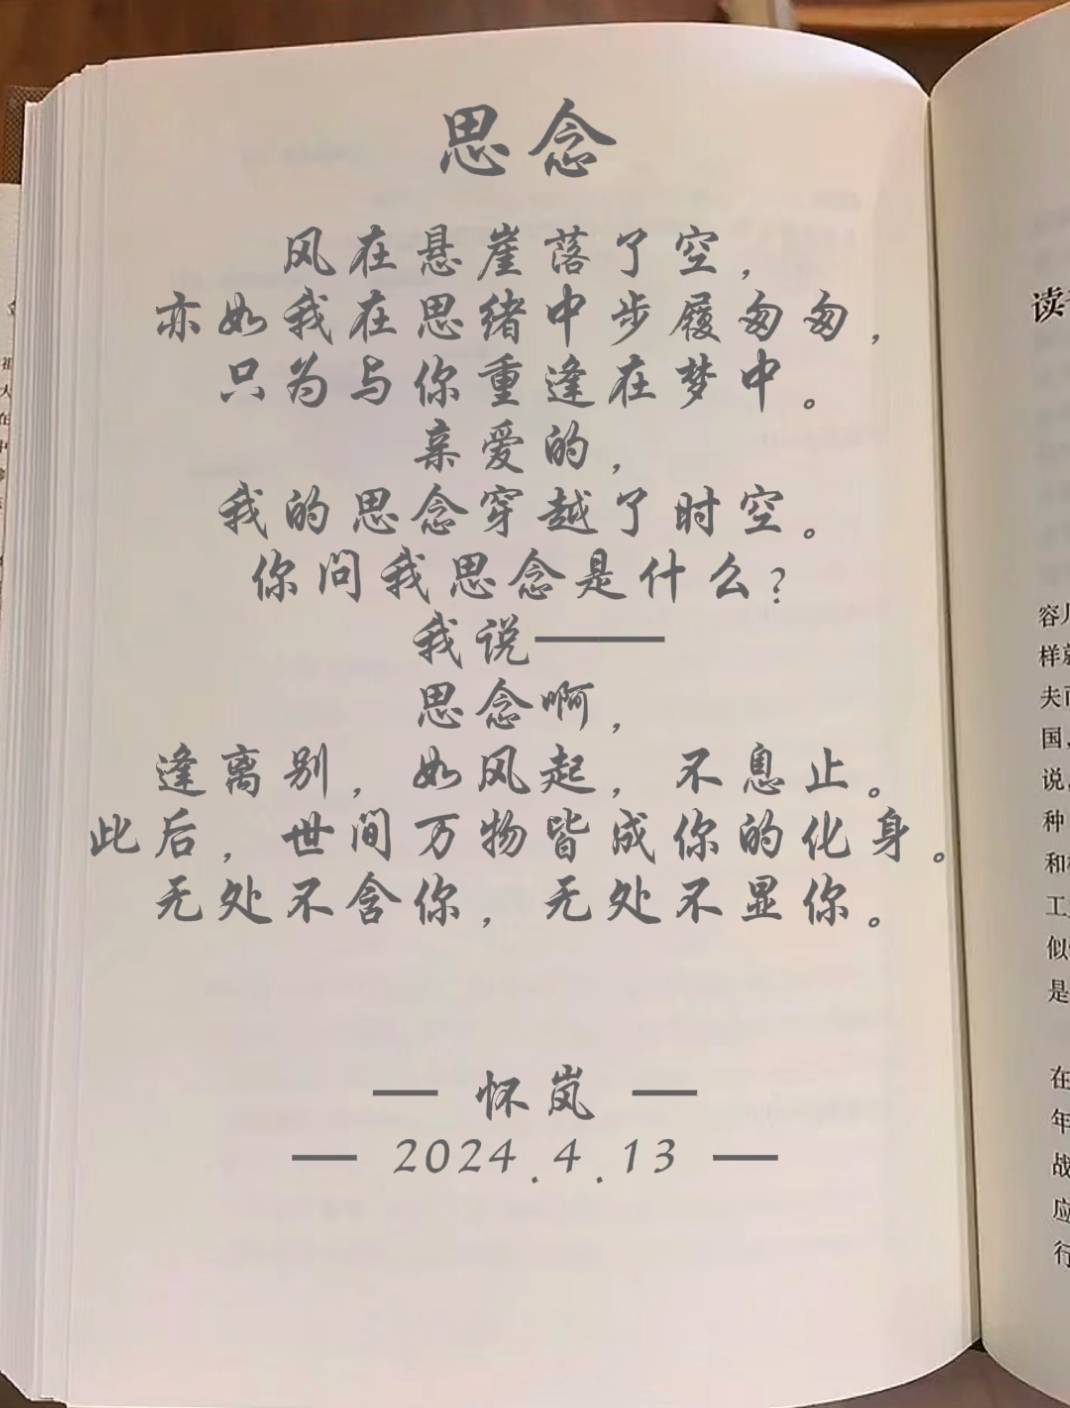 思念
风在悬崖落了空，
亦如我在思绪中步履匆匆，
只为与你重逢在梦中。
亲爱的，
我的思念穿越了时空。
你问我思念是什么？
我说——
思念啊，
逢离别，如风起，不息止。
此后，世间万物皆成你的化身。
无处不含你，无处不显你。
— 怀岚 —
— 2024.4.13 —
读
容
样
夫
国，
说，
种
和
工
似
是
在
年
战
应
行